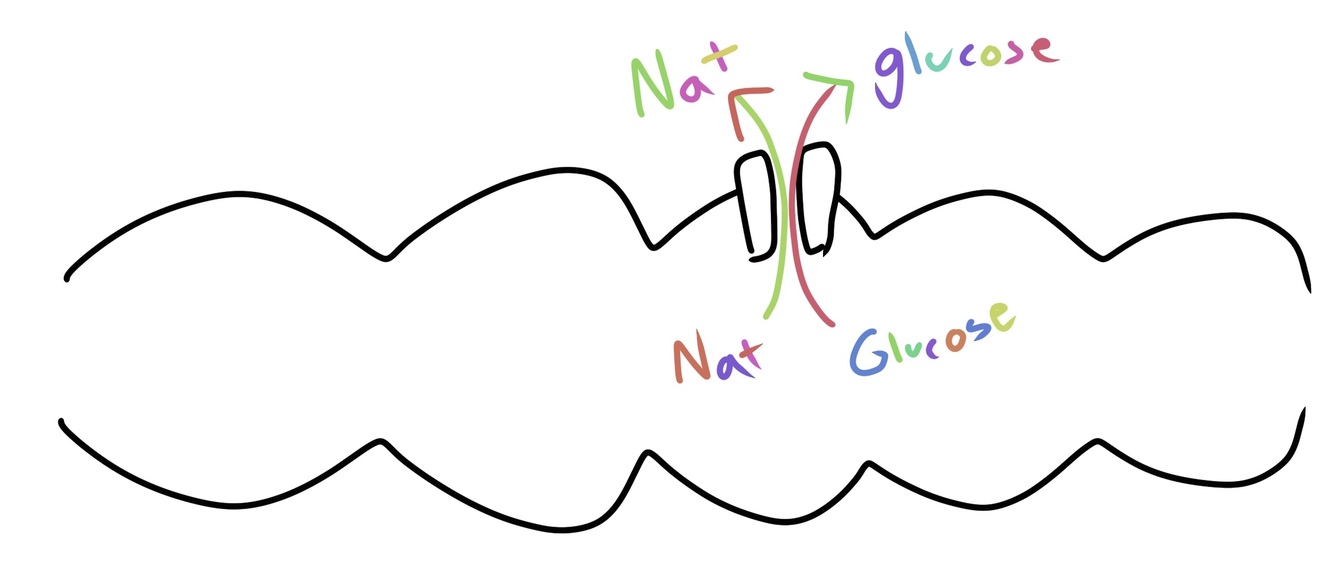 Na+ glucose
Na+ Glucose